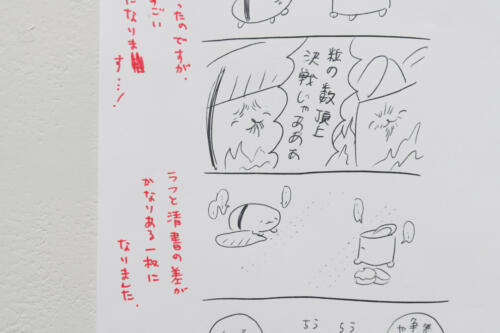 ったのですが、
すごい
になりま
す…!
粒の数頂上
決戦じゃあああ
ラフと清書の差が
かなりある一枚に
なりました。
ちう ちう